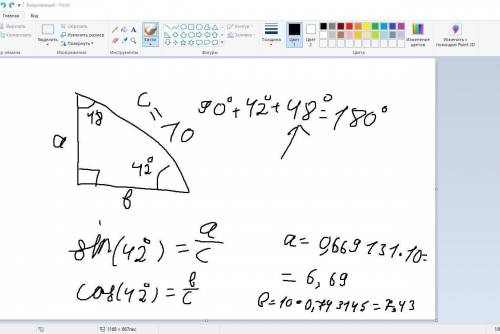 Безымянный - Paint
Файл
Главная
Вид
Выделить
Изменить размер
Повернуть
Изображение
Инструменты
Кисти
Контур
Заливка
Фигуры
Толщина
Цвет 1
Цвет 2
Изменение цветов
Изменить с помощью Paint 3D
Цвета
48
c = 10
a
42°
в
90° + 42° + 48° = 180°
sin(42°) = a/c
cos(42°) = в/c
a = 0,669131·10 =
= 6,69
в = 10·0,743145 = 7,43
1168 × 667пкс